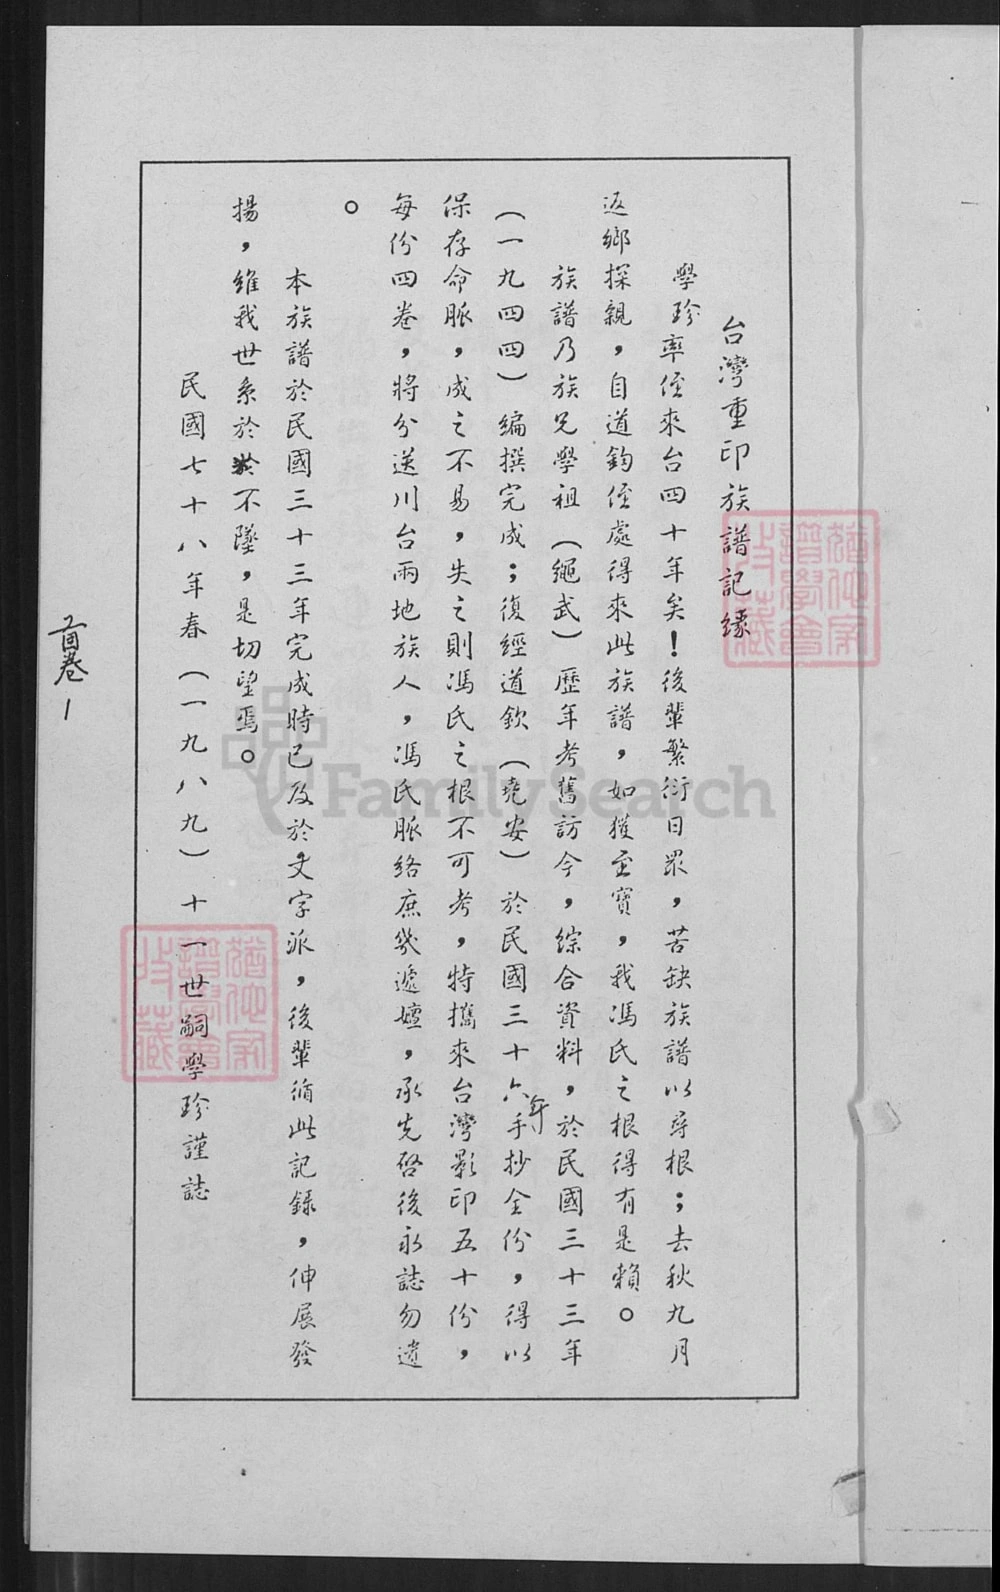 台灣重印族譜記緣
學珍率侄來台四十年矣!後輩繁衍日眾,苦缺族譜以尋根;去秋九月
返鄉探親,自道鈞侄處得來此族譜,如獲至寶,我馮氏之根得有是賴。
族譜乃族兄學祖(繩武)歷年考舊訪今,綜合資料,於民國三十三年
(一九四四)編撰完成;復經道欽(堯安)於民國三十六年手抄全份,得以
保存命脈,成之不易,失之則馮氏之根不可考,特攜來台灣影印五十份,
每份四卷,將分送川台兩地族人,馮氏脈絡庶幾遞嬗,承先啓後永誌勿遺
。
本族譜於民國三十三年完成時已及於文字派,後輩循此記錄,伸展發
揚,維我世系於不墜,是切望焉。
民國七十八年春(一九八九)十一世嗣學珍謹誌
首卷1
FamilySearch